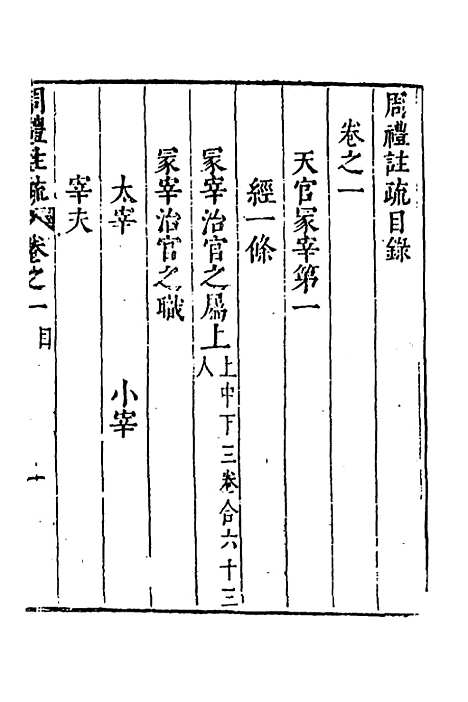 周禮註疏目錄
卷之一
天官冢宰第一
經一條
冢宰治官之屬上上中下三卷合六十三人
冢宰治官之職
太宰　小宰
宰夫
周禮註疏　卷之一目